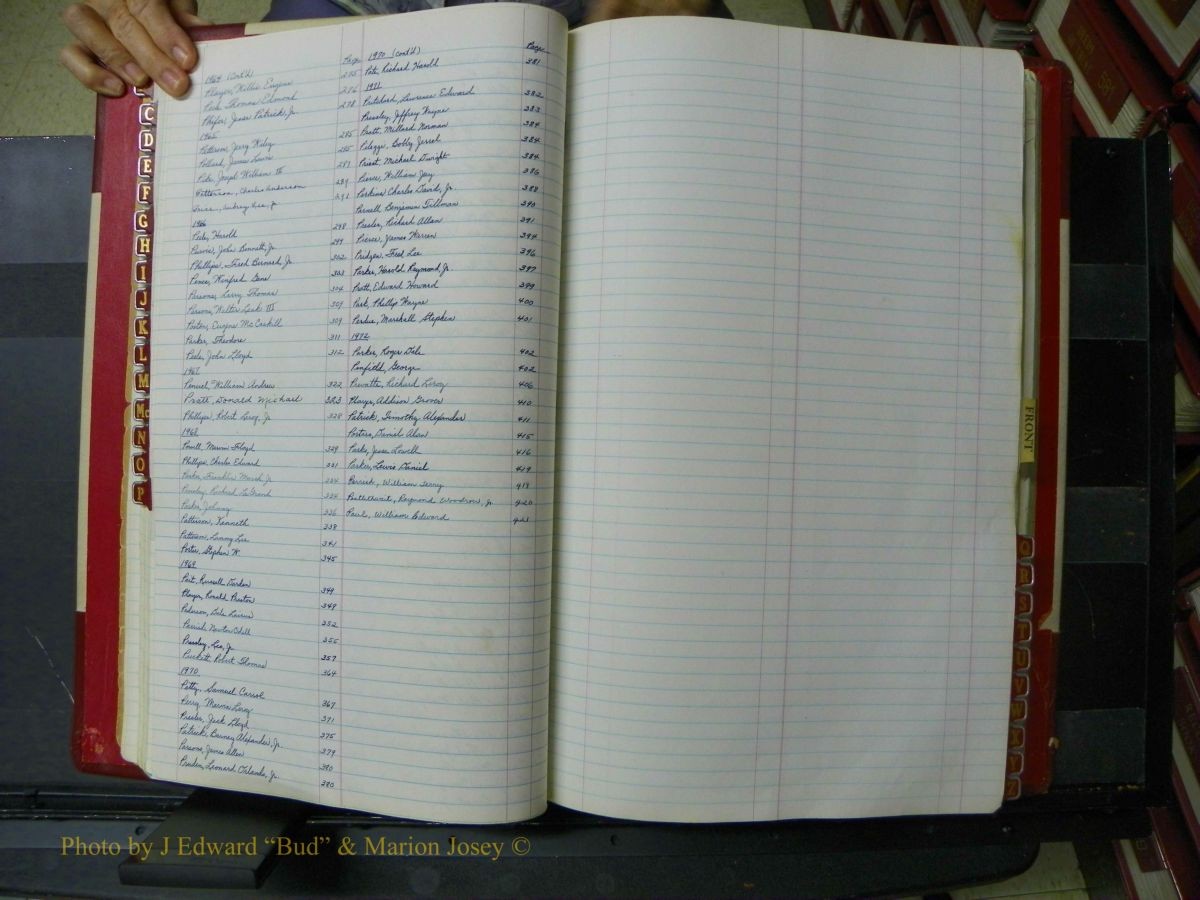 1964 (Cont'd) Page
Player, Willie Eugene 275
Peck, Thomas Edmond 276
Phifer, Jesse Patrick, Jr. 278
1965
Patterson, Jerry Wiley 285
Pollard, James Lewis 285
Pike, Joseph William III 287
Patterson, Charles Anderson 289
291
1966
Peele, Harold 298
Purvis, John Bennett, Jr. 299
Phillips, Fred Bernard, Jr. 302
Pence, Winfred Gene 303
Parsons, Larry Thomas 304
Parsons, Walter Leak III 307
Poston, Eugene McCaskill 309
Parker, Theodore 311
Peele, John Lloyd 312
1967
Penuel, William Andrew 322
Pratt, Donald Michael 323
Phillips, Robert Leroy, Jr. 328
1968
Powell, Marvin Floyd 329
Phillips, Charles Edward 331
Parker, Franklin Marsh, Jr. 334
Parsley, Richard LeGrand 334
Parker, Johnny 336
Patterson, Kenneth 338
Patterson, Lanny Lee 341
Porter, Stephen W. 345
1969
Pait, Russell Darden 349
Player, Ronald Preston 349
Pederson, Dale Laurus 352
Parrish, Newton Odell 355
Pressley, Leo, Jr. 357
Puckett, Robert Thomas 364
1970
Petty, Samuel Carrol 367
Perry, Marvin Leroy 371
Presler, Jack Lloyd 375
Patrick, Barney Alexander, Jr. 379
Parsons, James Allen 380
Pruden, Leonard Orlando, Jr. 380
1970 (Cont'd) Page
Pate, Richard Harold 381
1971
Pritchard, Lawrence Edward 382
Pressley, Jeffrey Wayne 383
Pratt, Millard Norman 384
Pileggi, Bobby Jerrel 384
Priest, Michael Dwight 384
Pierce, William Jay 386
Perkins, Charles David, Jr. 388
Parnell, Benjamin Tillman 390
Presler, Richard Allan 391
Pierce, James Warren 394
Pridgen, Fred Lee 396
Parker, Harold Raymond, Jr. 397
Pratt, Edward Howard 399
Park, Phillip Wayne 400
Perdue, Marshall Stephen 401
1972
Parker, Roger Dale 402
Penfield, George 402
Prevatte, Richard Leroy 406
Player, Addison Grover 410
Patrick, Timothy Alexander 411
Porters, Daniel Alan 415
Parks, Jesse Lowell 416
Parker, Lewis Daniel 417
Perrick, William Terry 419
Raymond Woodrow, Jr. 420
Paul, William Edward 421
C
D
E
F
G
H
I
J
K
L
M
Mc
N
O
P
FRONT
Q
R
S
T
U
V
W
X
Y
Z
Photo by J Edward “Bud” & Marion Josey ©